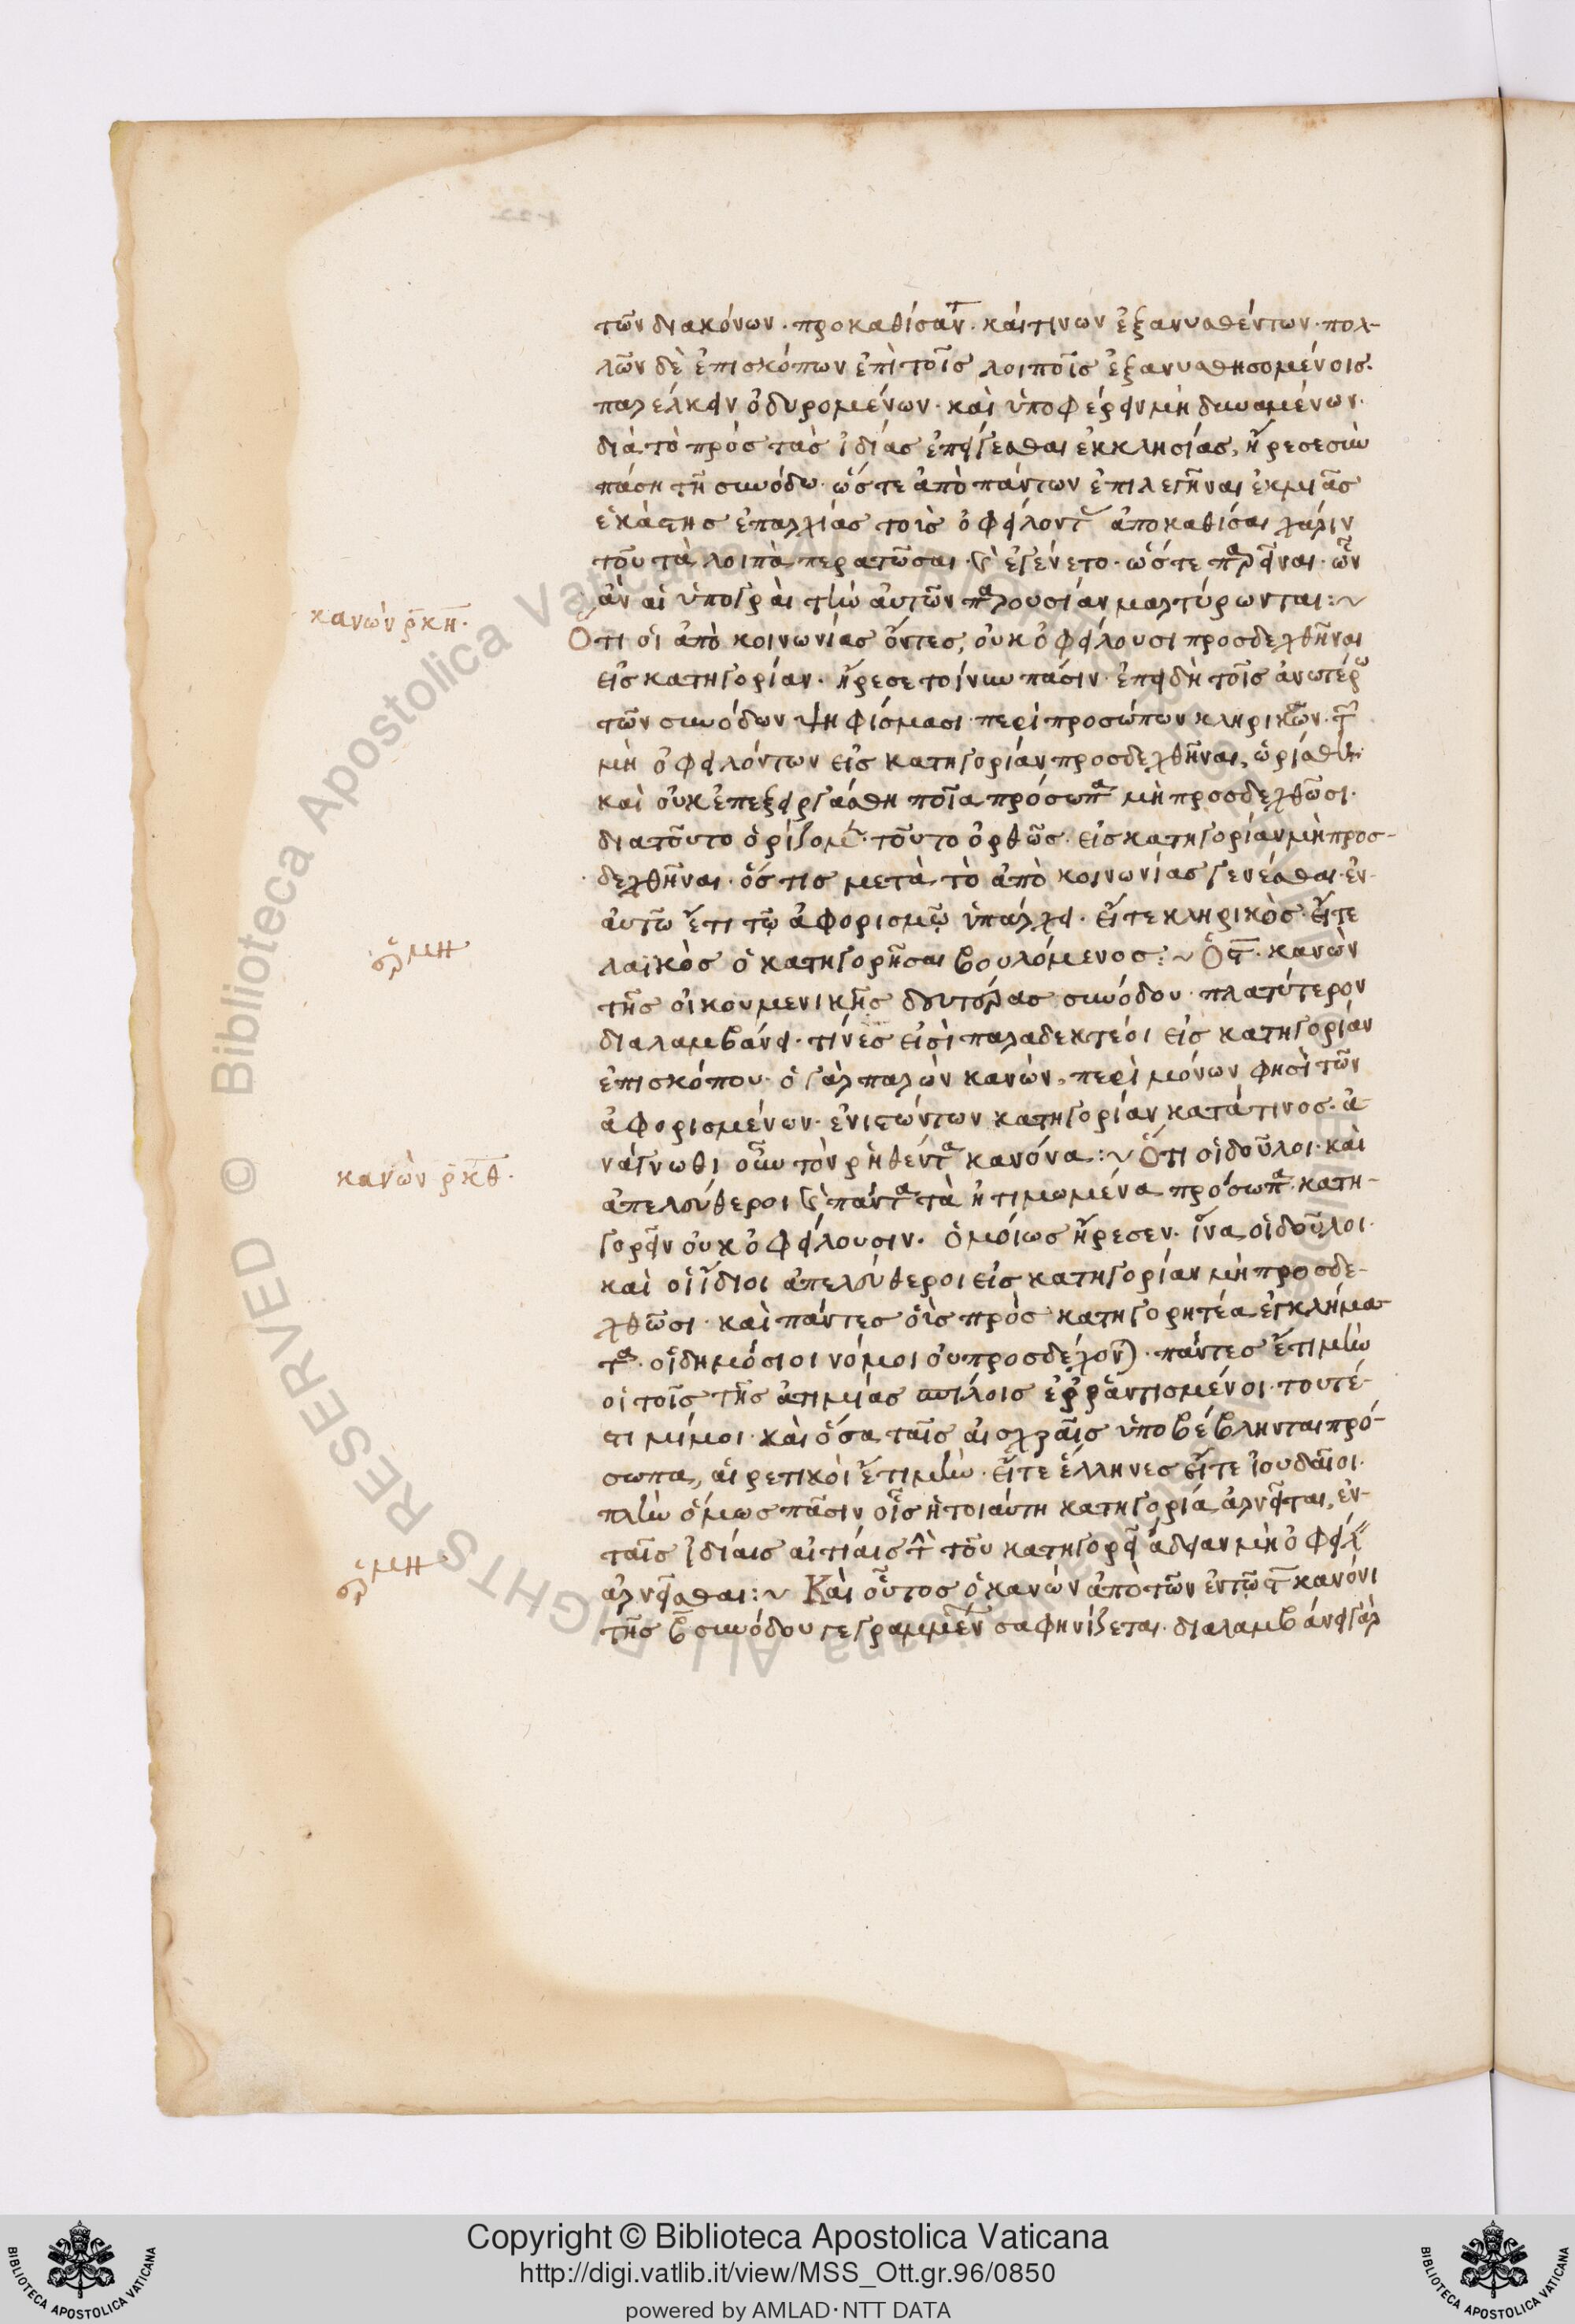 τῶν διακόνων. προκαθίσαντ. καί τινων ἐξανυσθέντων. πολ-
λῶν δὲ ἐπισκόπων ἐπὶ τοῖς λοιποῖς ἐξανυσθησομένοις.
παρέλκειν ὀδυρομένων. καὶ ὑποφέρειν μὴ δυναμένων.
διὰ τὸ πρὸς τὰς ἰδίας ἐπείγεσθαι ἐκκλησίας, ἤρεσε σὺν
πάσῃ τῇ συνόδω. ὥστε ἀπὸ πάντων ἐπιλεγῆναι ἐκ μιᾶς
ἑκάστης ἐπαρχίας τοὺς ὀφείλοντ ἀποκαθίσαι χάριν
τοῦ τὰ λοιπὰ περατῶσαι. καὶ ἐγένετο. ὥστε παρεῖναι. ὧν
ἂν αἱ ὑπογραὶ τὴν αὐτῶν παρουσίαν μαρτύρωνται:~
κανὼν ρκη.
Ὅτι οἱ ἀπὸ κοινωνίας ὄντες, οὐκ ὀφείλουσι προσδεχθῆναι
εἰς κατηγορίαν. ἤρεσε τοίνυν πᾶσιν. ἐπειδὴ τοῖς ἀνωτέρω
τῶν συνόδων ψηφίσμασι. περὶ προσώπων κληρικῶν. τῶν
μὴ ὀφειλόντων εἰς κατηγορίαν προσδεχθῆναι, ὡρίσθη
καὶ οὐκ ἐπεξειργάσθη ποῖα πρόσωπα μὴ προσδεχθῶσι.
διατοῦτο ὁρίζομεν. τοῦτο ὀρθῶς. εἰς κατηγορίαν μὴ προσ-
δεχθῆναι. ὅστις μετὰ τὸ ἀπὸ κοινωνίας γενέσθαι. ἐν
αὐτῶ ἔτι τῷ ἀφορισμῷ ὑπάρχει. εἴτε κληρικὸς. εἴτε
λαϊκὸς ὁ κατηγορῆσαι βουλόμενος:~ Ὁ ϛ. κανὼν
τῆς οἰκουμενικῆς δευτέρας συνόδου. πλατύτερον
διαλαμβάνει. τίνές εἰσὶ παραδεκτέοι εἰς κατηγορίαν
ἐπισκόπου. ὁ γὰρ παρὼν κανὼν, περὶ μόνων φησὶ τῶν
ἀφορισμένων. ἐνιστώντων κατηγορίαν κατά τινος. ἀ-
νάγνωθι οὖν τὸν ῥηθέντα κανόνα:~ Ὅτι οἱ δοῦλοι. καὶ
κανὼν ρκθ.
ἀπελεύθεροι καὶ πάντα τὰ ἠτιμωμένα πρόσωπα. κατη-
γορεῖν οὐκ ὀφείλουσιν. ὁμοίως ἤρεσεν. ἵνα οἱ δοῦλοι.
καὶ οἱ ἴδιοι ἀπελεύθεροι εἰς κατηγορίαν μὴ προσδε-
χθῶσι. καὶ πάντες οὓς πρὸς κατηγορητέα ἐγκλήμα
τα. οἱ δημόσιοι νόμοι οὐ προσδέχονται. πάντες ἔτι μὴν
οἱ τοῖς τῆς ἀτιμίας σπίλοις ἐῤῥαντισμένοι. τουτέ-
στι μίμοι. καὶ ὅσα ταῖς αἰσχραῖς ὑποβέβληνται πρό-
σωπα, αἱρετικοὶ ἔτι μὴν. εἴτε ἕλληνες εἴτε ἰουδαῖοι.
πλὴν ὅμως πᾶσιν οἷς ἡ τοιαύτη κατηγορία ἀρνεῖται, ἐν
ταῖς ἰδίαις αἰτίαις τὴν τοῦ κατηγορεῖν ἄδειαν μὴ ὀφείλειν
ἀρνεῖσθαι:~ Καὶ οὗτος ὁ κανὼν ἀπὸ τῶν ἐν τῷ ϛ κανόνι
τῆς β συνόδου γεγραμμένων σαφηνίζεται. διαλαμβάνει γὰρ
Copyright © Biblioteca Apostolica Vaticana
http://digi.vatlib.it/view/MSS_Ott.gr.96/0850
powered by AMLAD·NTT DATA
BIBLIOTECA APOSTOLICA VATICANA
BIBLIOTECA APOSTOLICA VATICANA